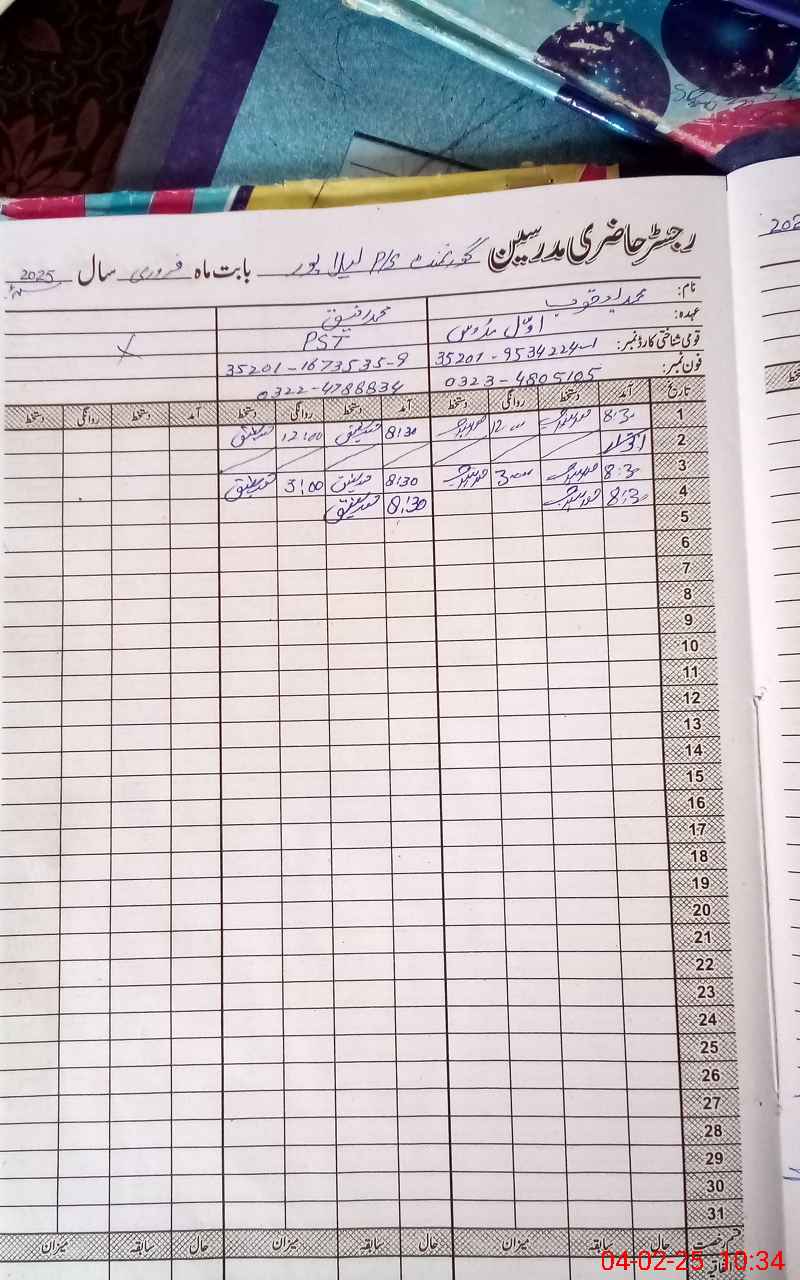 رجسٹر حاضری مدرسین گورنمنٹ P/S لیلا پور بابت ماہ فروری سال 2025
نام: محمد یعقوب محمد رفیق
عہدہ: اوّل مدرس PST
قومی شناختی کارڈ نمبر: 35201-9534224 35201-1673535-9
فون نمبر: 0323-4805105 0322-4788834
تاریخ آمد دستخط روانگی دستخط آمد دستخط روانگی دستخط آمد دستخط روانگی دستخط
1 8:30 12:00 8:30 12:00
2 اتوار
3 8:30 3:00 8:30 3:00
4 8:30 8:30
5
6
7
8
9
10
11
12
13
14
15
16
17
18
19
20
21
22
23
24
25
26
27
28
29
30
31
قسم رخصت حال سابقہ میزان حال سابقہ میزان حال سابقہ میزان
اتفاقیہ
04-02-25 10:34